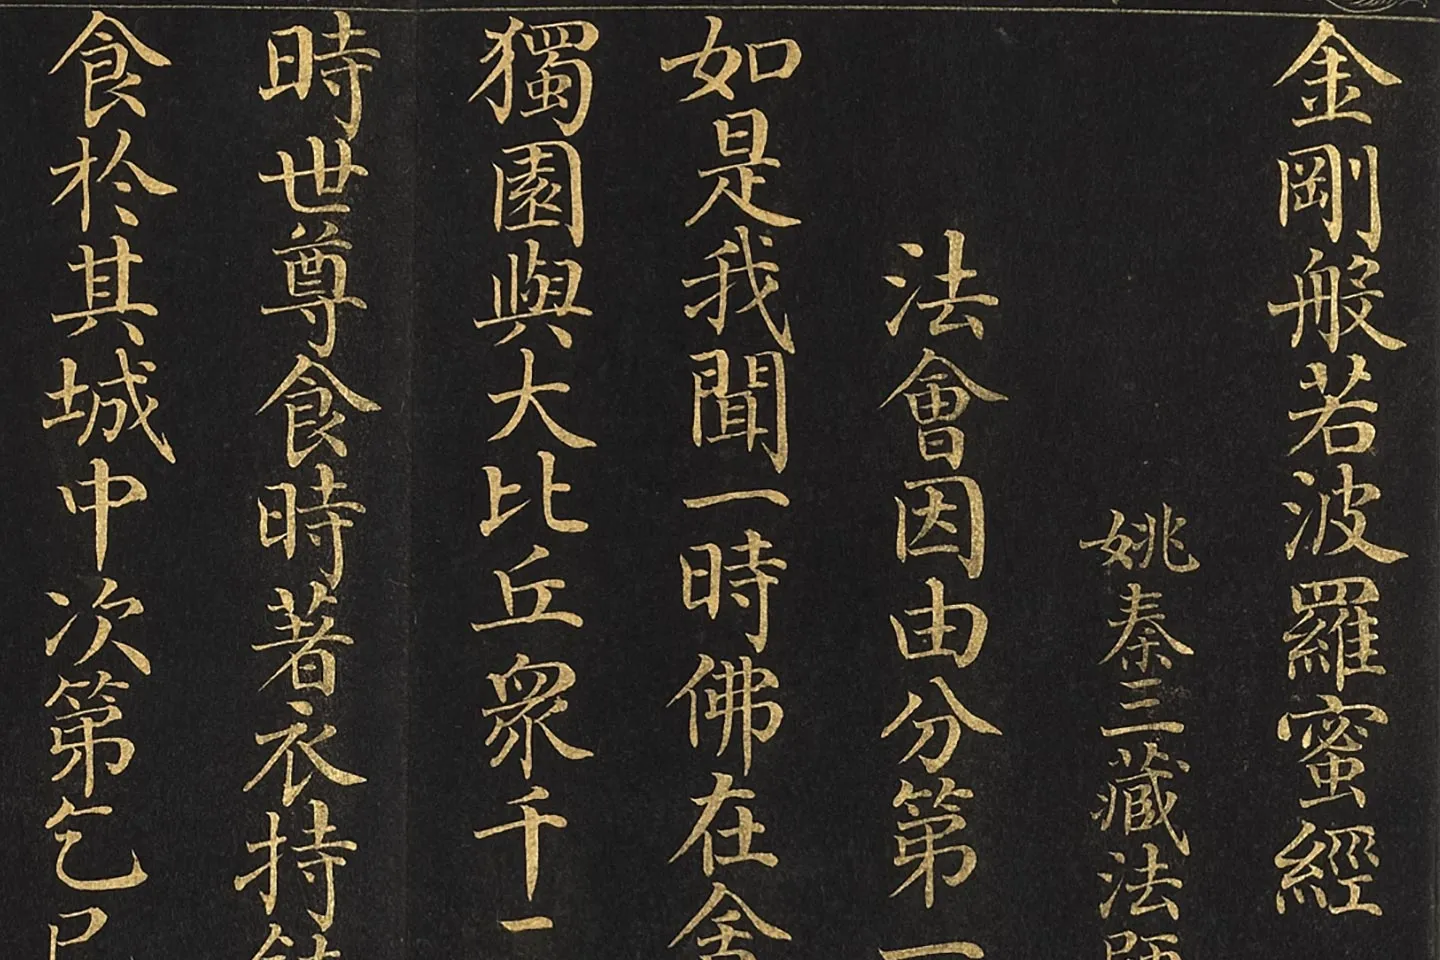 金剛般若波羅蜜經
姚秦三藏法師
法會因由分第一
如是我聞一時佛在舍
獨園與大比丘眾千
時世尊食時著衣持
食於其城中次第乞已